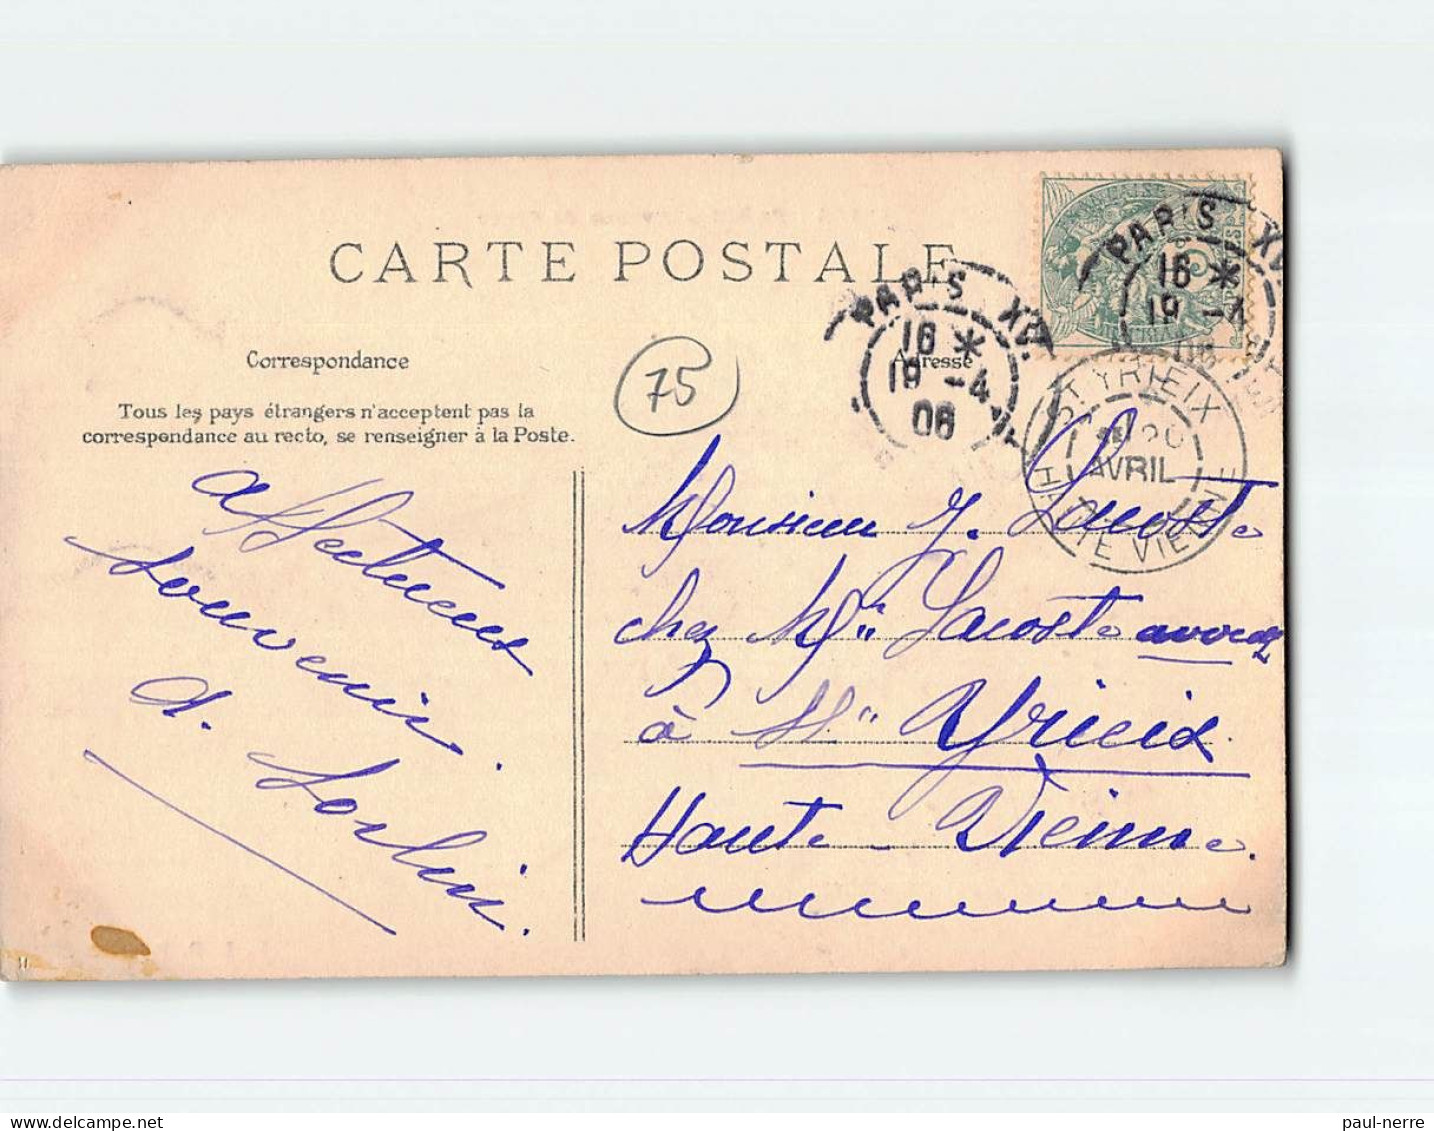 CARTE POSTALE
Correspondance
Adresse
Tous les pays étrangers n'acceptent pas la
correspondance au recto, se renseigner à la Poste.
75
PARIS XV
16 *
19 -4
06
PARIS XV
16 *
19 -4
06
ST YRIEIX
20
AVRIL
HAUTE VIENNE
affectueux
souvenir.
Monsieur J. Lacoste
chez Mr Lacoste avocat
à St Yrieix
Haute-Vienne.
paul-nerre